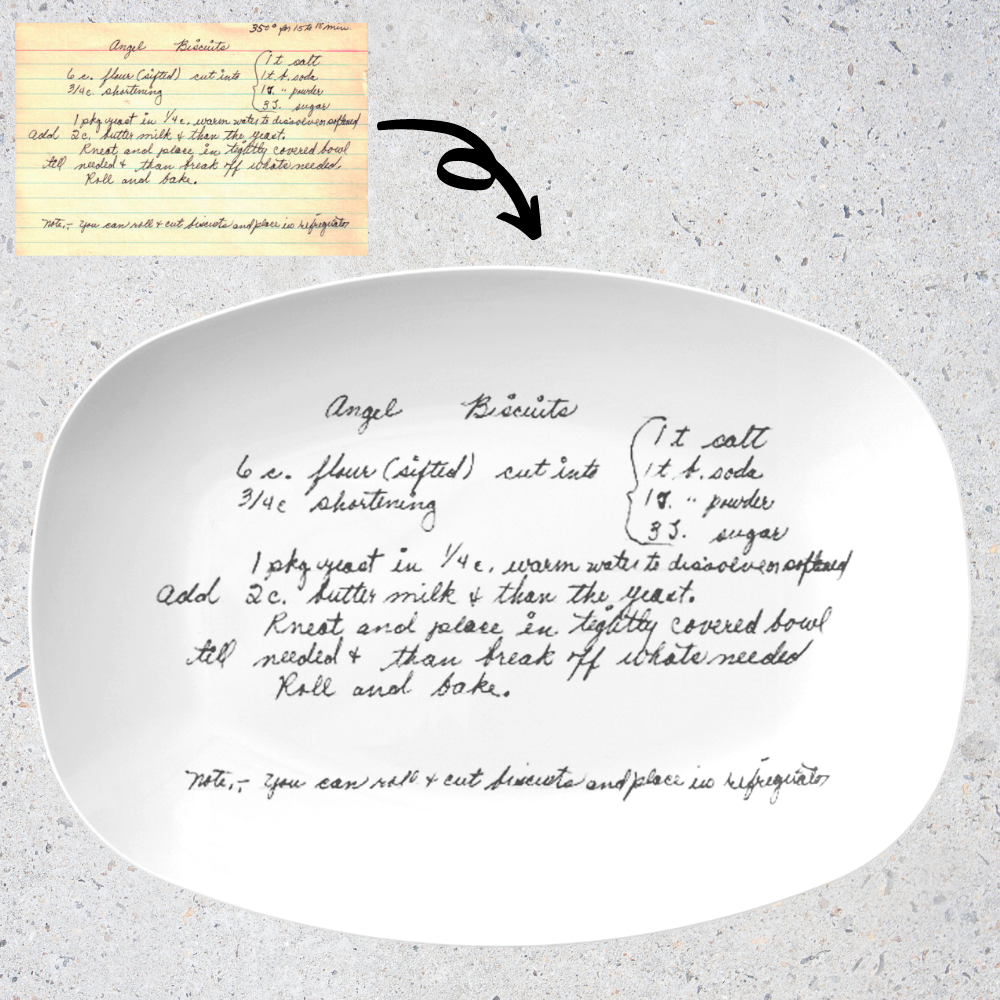 350° for 15 to 18 min.
Angel Biscuits
6 c. flour (sifted) cut into
3/4 c. shortening
1 t salt
1 t. b. soda
1 T. " powder
3 T. sugar
1 pkg yeast in 1/4 c. warm water to dissolve
add 2c. butter milk & than the yeast.
Kneat and place in tightly covered bowl
till needed & than break off whats needed
Roll and bake.
Note:- you can roll & cut biscuits and place in refregiator
Angel Biscuits
6 c. flour (sifted) cut into
3/4 c shortening
1 t salt
1 t b. soda
1 T. " powder
3 T. sugar
1 pkg yeast in 1/4 c. warm water to dissolve
add 2c. butter milk & than the yeast.
Kneat and place in tightly covered bowl
till needed & than break off whats needed
Roll and bake.
Note:- you can roll & cut biscuits and place in refregiator